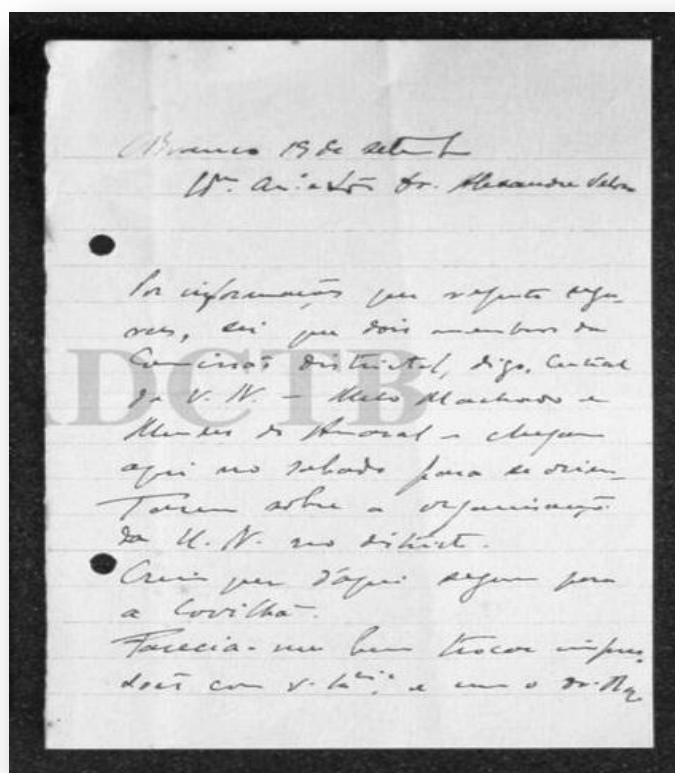 CBranco 19 de setemb
Dr. Alexandre
Por informações que reputo segu-
ras, sei que dois membros da
Comissão districtal, digo, Central
da U. N. – Melo Machado e
Mendes do Amaral – chegam
aqui no sabado para se orien-
tarem sobre a organisação
da U. N. no districto.
Creio que d'aqui seguem para
a Covilhã.
Parecia-me bem trocar impres-
sões com v. e com o dr.
ADCTB